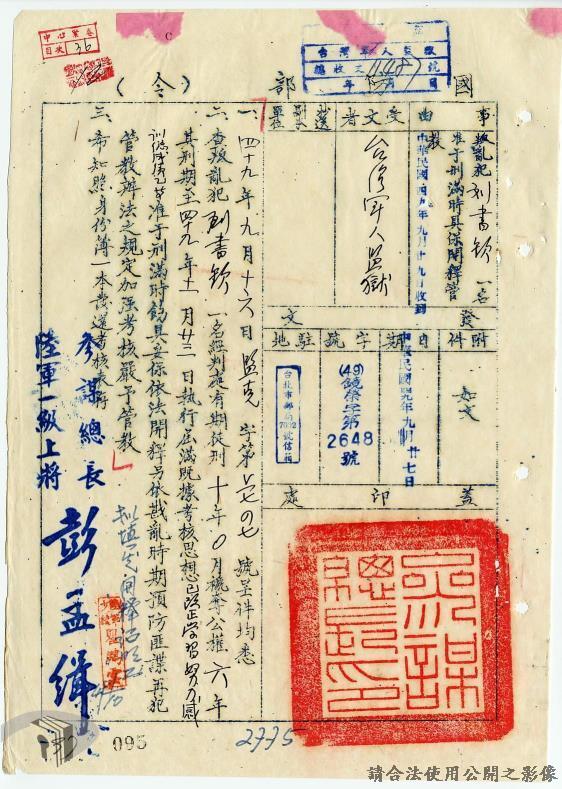 中心案卷
目次 36
台灣軍人監獄
總收文11148號
年 月 日
國 部 (令)
事由
叛亂犯 刘書欽 一名
准予刑滿時具保開釋管教
中華民國四九年九月十九日收到
受文者
台灣軍人監獄
發文
附件
如文
日期
中華民國四九年九月廿七日
字號
(49)
字第
2648
號
駐地
台北市郵局
7092
號信箱
蓋印處
一、四十九年九月十六日監克字第 號呈件均悉
二、查叛亂犯 刘書欽 一名經判處有期徒刑十年〇月褫奪公權六年
其刑期至四十九年十一月廿三日執行屆滿既據考核思想已改正學習努力感
訓成績乙等准予刑滿時飭具妥保依法開釋另依戡亂時期預防匪諜再犯
管教辦法之規定加強考核嚴予管教
三、希知照身份簿一本發還考核表存
參謀總長
陸軍一級上將 彭孟緝
參謀總長印
095
2775
請合法使用公開之影像